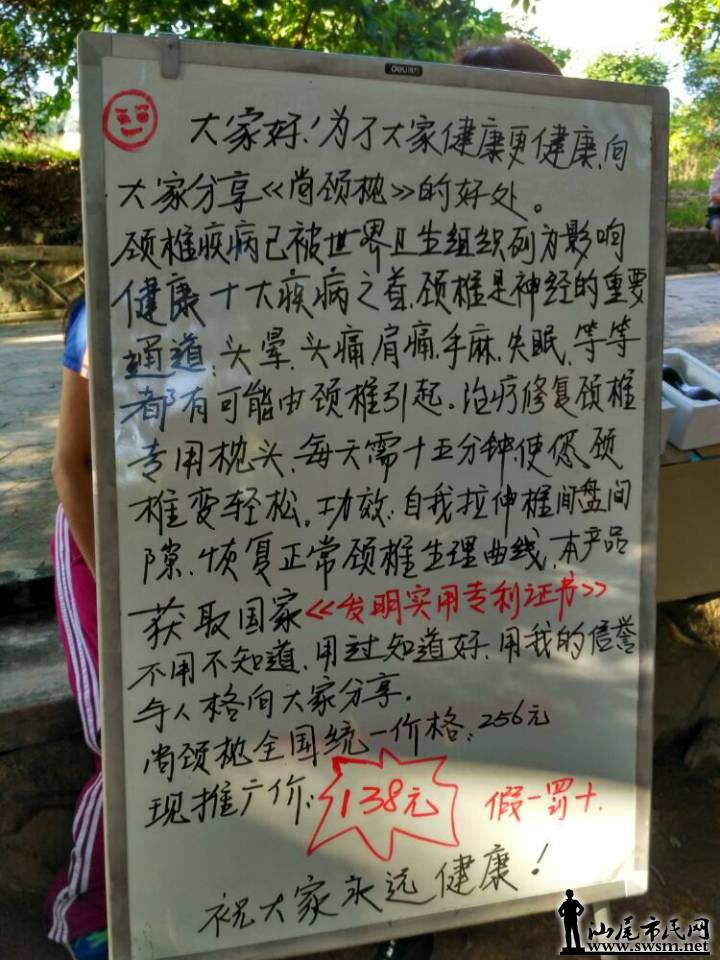 deli得力
大家好!为了大家健康更健康,向
大家分享《尚颈枕》的好处。
颈椎疾病已被世界卫生组织列为影响
健康十大疾病之首,颈椎是神经的重要
通道:头晕、头痛、肩痛、手麻、失眠、等等
都有可能由颈椎引起。治疗修复颈椎
专用枕头、每天需十五分钟,使您颈
椎变轻松。功效:自我拉伸椎间盘间
隙、恢复正常颈椎生理曲线、本产品
获取国家《发明实用专利证书》
不用不知道、用过知道好、用我的信誉
与人格向大家分享.
尚颈枕全国统一价格:256元
现推广价:138元 假一罚十.
祝大家永远健康!
汕尾市民网
www.swsm.net